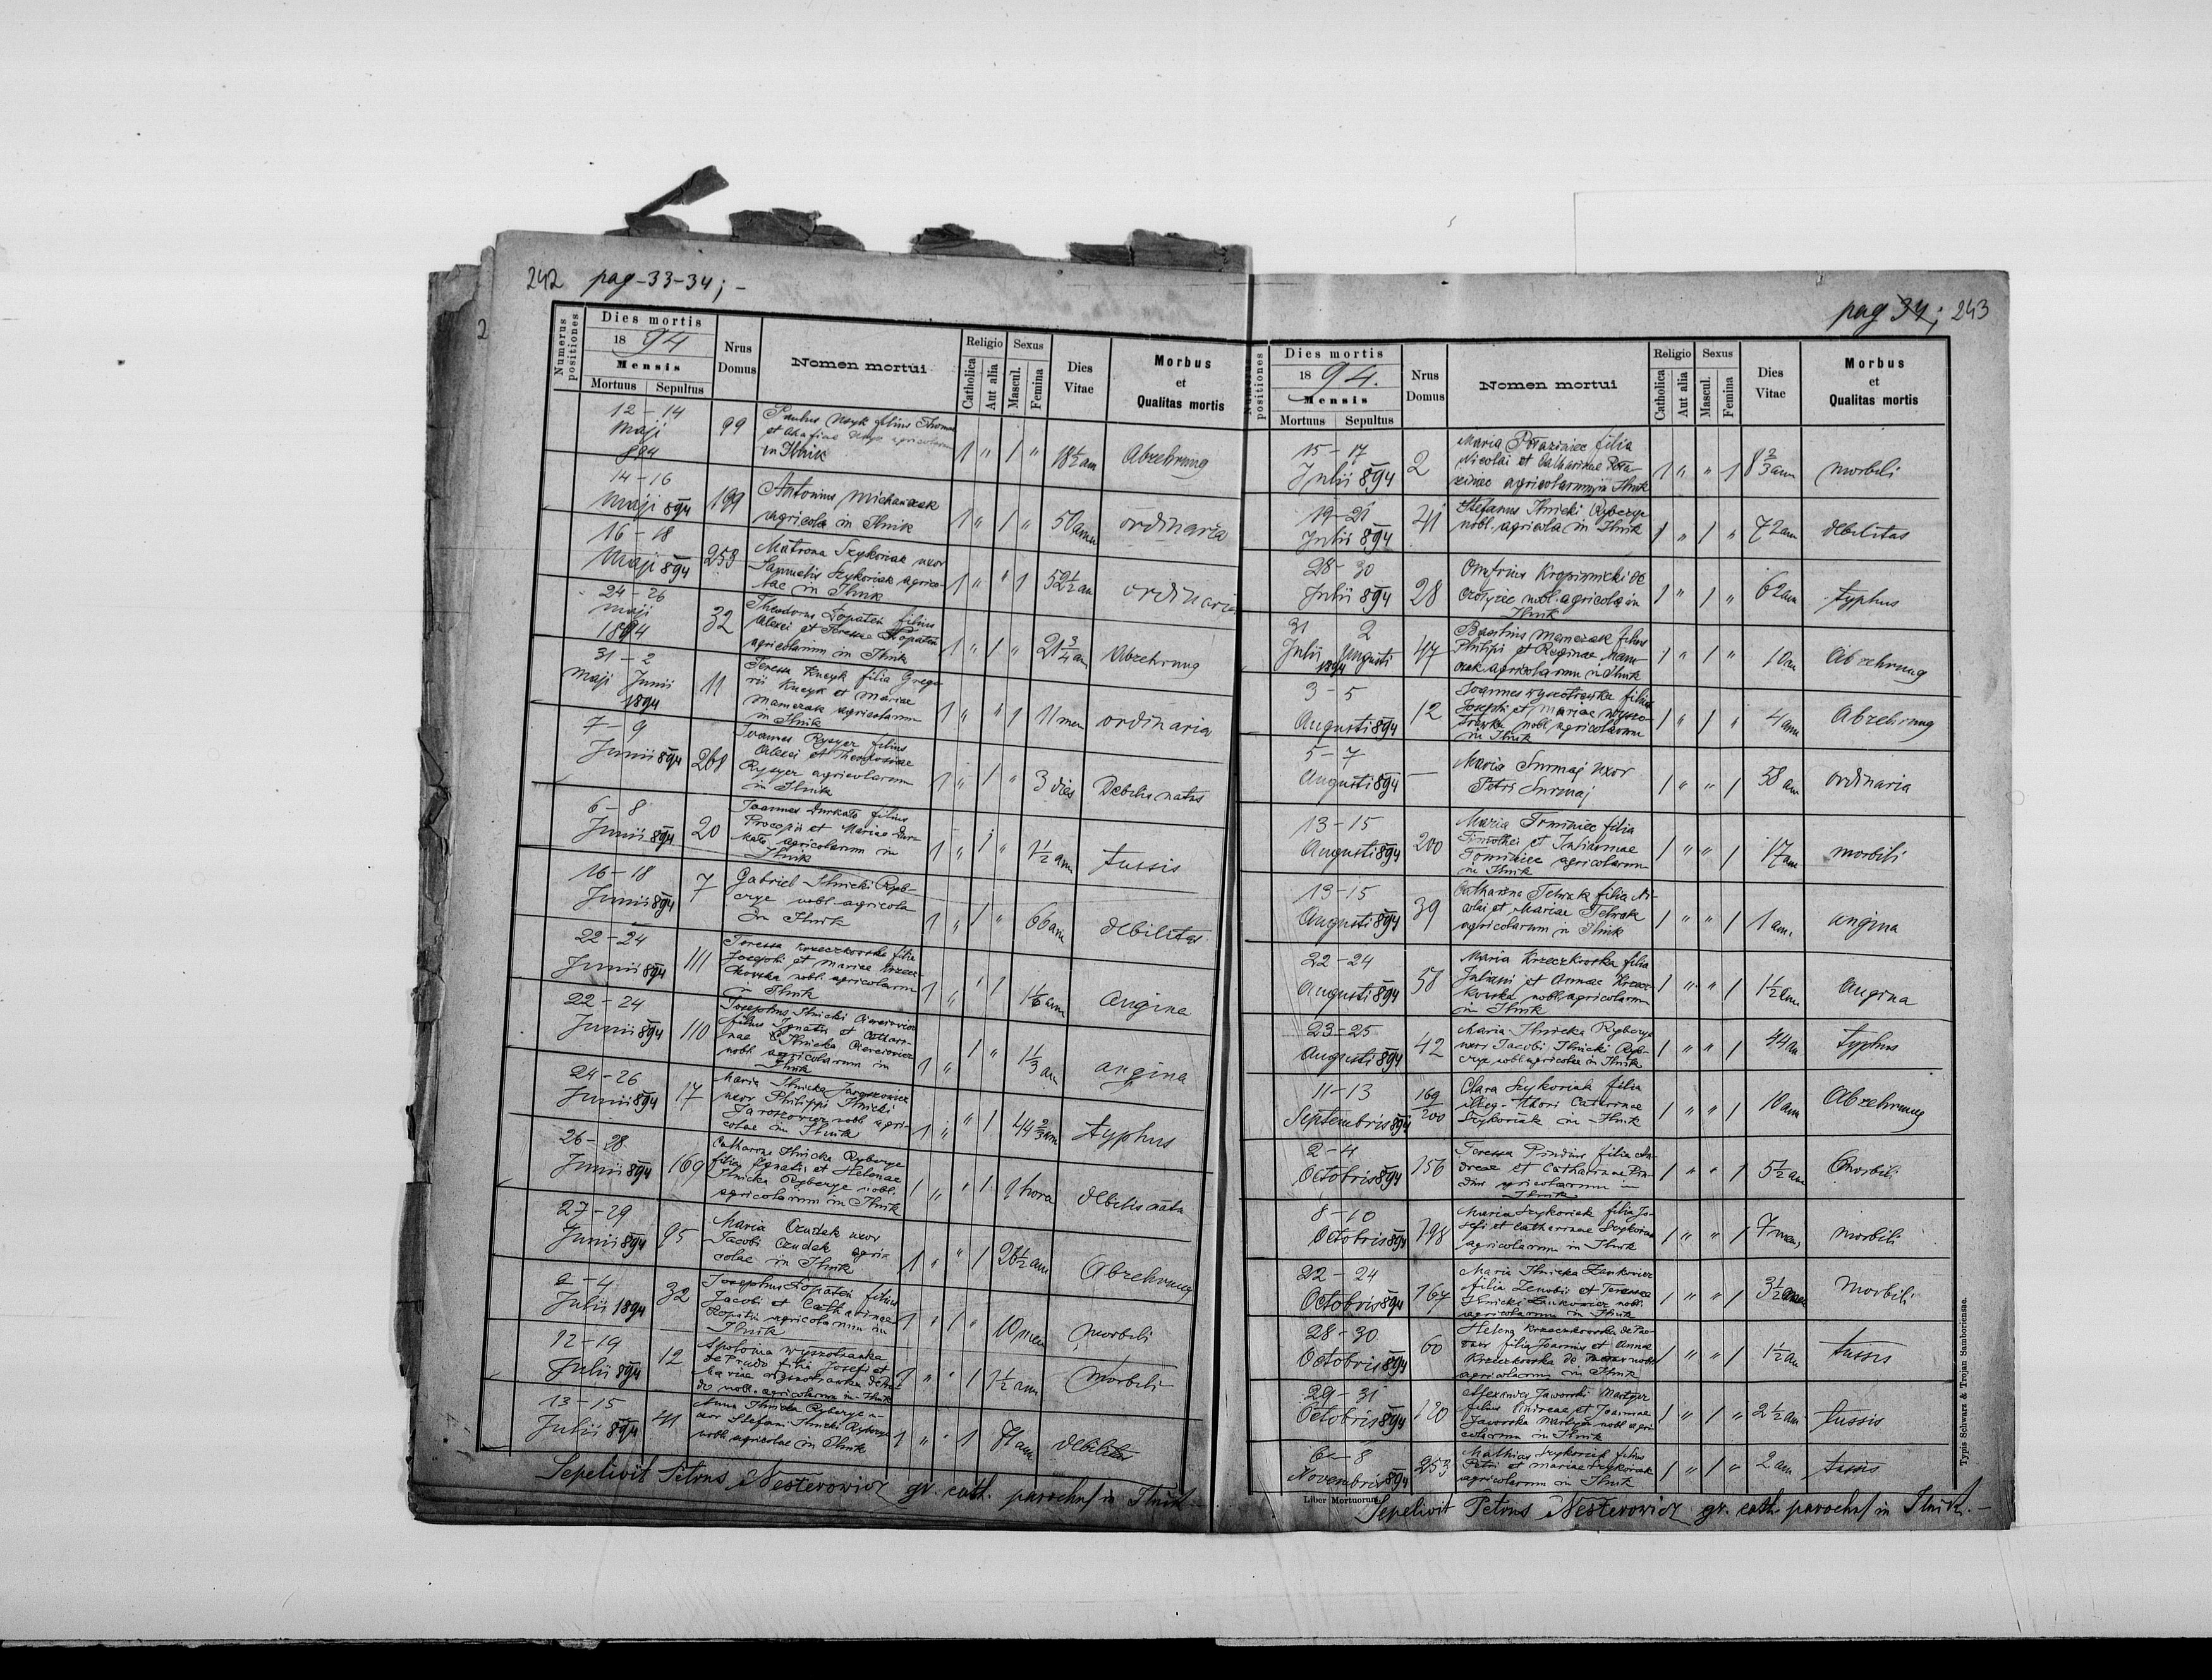 242 pag-33-34; -
Numerus positiones
Dies mortis
18 94
Mensis
Mortuus Sepultus
Nrus Domus
Nomen mortui
Religio
Catholica
Aut alia
Sexus
Mascul.
Femina
Dies Vitae
Morbus
et
Qualitas mortis
12-14 Maji 894 99 Paulus filius
et
in Ilnik 1 " 1 " 18½ ann Abzehrung
14-16 Maji 894 199 Antonius Michanczak
agricola in Ilnik 1 " 1 " 50 ann ordinaria
16-18 Maji 894 258 Matrona Szykoriak uxor
Samuelis Szykoriak agrico-
lae in Ilnik 1 " " 1 52½ an ordinaria
24-26 Maji 1894 32 Theodorus Łopatcn filius
Alexei et Teressae Łopatcn
agricolarum in Ilnik 1 " 1 " 21¾ an Abzehrung
31-2 Maji Junii 1894 11 Teressa Knczyk filia Grego
rii Knczyk et Mariae
Mamczak agricolarum
in Ilnik 1 " " 1 11 men ordinaria
7-9 Junii 894 268 Joannes Ryzyer filius
Alexei et Theodosiae
Ryzyer agricolarum
in Ilnik 1 " 1 " 3 dies Debilis natus
6-8 Junii 894 20 Joannes Durkato filius
Procopii et Mariae Dur-
kato agricolarum in
Ilnik 1 " 1 " 1½ ann tussis
16-18 Junii 894 7 Gabriel Ilnicki Ryb-
czyc nobl. agricola
in Ilnik 1 " 1 " 66 ann debilitas
22-24 Junii 894 111 Teressa Krzeczkowska filia
Josephi et Mariae Krzecz
kowska nobl. agricolarum
in Ilnik 1 " " 1 1⅙ ann angina
22-24 Junii 894 110 Josephus Ilnicki
filius Ignatii et Cathari-
nae Ilnicka
nobl. agricolarum in
Ilnik 1 " 1 " 1⅓ an angina
24-26 Junii 894 17 Maria Ilnicka Jaroszowicz
uxor Philippi Ilnicki
Jaroszowicz nobl. agri-
colae in Ilnik 1 " " 1 44⅔ ann typhus
26-28 Junii 894 169 Catharina Ilnicka Rybczyc
filia Ignatii et Helenae
Ilnicka Rybczyc nobl.
agricolarum in Ilnik 1 " " 1 1 hora debilis nata
27-29 Junii 894 95 Maria Czudak uxor
Jacobi Czudak agri-
colae in Ilnik 1 " " 1 26½ ann Abzehrung
2-4 Julii 1894 32 Josephus Łopatcn filius
Jacobi et Catharinae
Łopatcn agricolarum in
Ilnik 1 " 1 " 10 men morbili
12-19 Julii 894 12 Apolonia Wyszotranka
de filia Josefi et
Mariae
nobl. agricolarum in Ilnik 1 " " 1 1½ ann Morbili
13-15 Julii 894 41 Anna Ilnicka Rybczyc u-
xor Stefani Ilnicki Rybczyc
nobl. agricolae in Ilnik 1 " " 1 71 ann debilitas
Sepelivit Petrus Nesterowicz gr. cath. parochus in Ilnik -
pag 34; 243
Numerus positiones
Dies mortis
18 94.
Mensis
Mortuus Sepultus
Nrus Domus
Nomen mortui
Religio
Catholica
Aut alia
Sexus
Mascul.
Femina
Dies Vitae
Morbus
et
Qualitas mortis
15-17 Julii 894 2 Maria filia
Nicolai et Catharinae
agricolarum in Ilnik 1 " " 1 8⅔ ann morbili
19-21 Julii 894 41 Stefanus Ilnicki Rybczyc
nobl. agricola in Ilnik 1 " 1 " 72 ann debilitas
28-30 Julii 894 28 Onufrius Kropiwnicki de
nobl. agricola in
Ilnik 1 " 1 " 62 ann typhus
31 2 Julii Augusti 1894 47 Basilius Mamczak filius
Philippi et Reginae Mam-
czak agricolarum in Ilnik 1 " 1 " 10 an Abzehrung
3-5 Augusti 894 12 Joannes filius
Josephi et Mariae
nobl. agricolarum
in Ilnik 1 " 1 " 4 ann Abzehrung
5-7 Augusti 894 — Maria Surmaj uxor
Petri Surmaj 1 " " 1 58 an ordinaria
13-15 Augusti 894 200 Maria Tominiec filia
Timothei et Juliannae
Tominiec agricolarum
in Ilnik 1 " " 1 17 an morbili
13-15 Augusti 894 39 Catharina filia Ni-
colai et Mariae
agricolarum in Ilnik 1 " " 1 1 ann. angina
22-24 Augusti 894 58 Maria Krzeczkowska filia
Juliani et Annae Krzecz-
kowska nobl. agricolarum
in Ilnik 1 " " 1 1½ ann angina
23-25 Augusti 894 42 Maria Ilnicka Rybczyc
uxor Jacobi Ilnicki Ryb-
czyc nobl. agricolae in Ilnik 1 " " 1 44 an typhus
11-13 Septembris 894 169/200 Clara Szykoriak filia
illeg. thori Catarinae
Szykoriak in Ilnik 1 " " 1 10 ann Abzehrung
2-4 Octobris 894 156 Teressa Prudius filia An-
dreae et Catharinae Pru-
dius agricolarum in
Ilnik 1 " " 1 5½ ann Morbili
8-10 Octobris 894 198 Maria Szykoriak filia Jo-
sefi et Catharinae Szykoriak
agricolarum in Ilnik 1 " " 1 7 men, Morbili
22-24 Octobris 894 167 Maria Ilnicka Zankowicz
filia Zenobii et Teressae
Ilnicki Zankowicz nobl.
agricolarum in Ilnik 1 " " 1 3½ Morbili
28-30 Octobris 894 60 Helena Krzeczkowska de
filia Joannis et Annae
Krzeczkowska de nobl.
agricolarum in Ilnik 1 " " 1 1½ an tussis
29-31 Octobris 894 120 Alexander Jaworski
filius Andreae et Joannae
Jaworska nobl. agri-
colarum in Ilnik 1 " 1 " 2½ an tussis
6-8 Novembris 894 253 Mathias Szykoriak filius
Petri et Mariae Szykoriak
agricolarum in Ilnik 1 " 1 " 2 ann tussis
Liber Mortuorum.
Sepelivit Petrus Nesterowicz gr. cath. parochus in Ilnik. -
Typis Schwarz & Trojan Samboriensae.